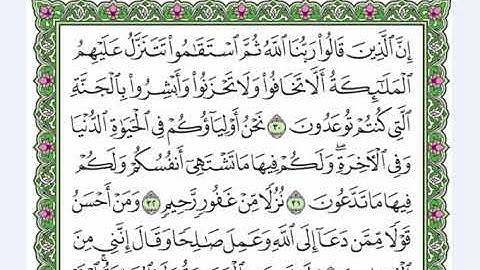 إِنَّ ٱلَّذِينَ قَالُوا۟ رَبُّنَا ٱللَّهُ ثُمَّ ٱسْتَقَٰمُوا۟ تَتَنَزَّلُ عَلَيْهِمُ
ٱلْمَلَٰٓئِكَةُ أَلَّا تَخَافُوا۟ وَلَا تَحْزَنُوا۟ وَأَبْشِرُوا۟ بِٱلْجَنَّةِ
ٱلَّتِى كُنتُمْ تُوعَدُونَ ٣٠ نَحْنُ أَوْلِيَآؤُكُمْ فِى ٱلْحَيَوٰةِ ٱلدُّنْيَا
وَفِى ٱلْءَاخِرَةِ ۖ وَلَكُمْ فِيهَا مَا تَشْتَهِىٓ أَنفُسُكُمْ وَلَكُمْ
فِيهَا مَا تَدَّعُونَ ٣١ نُزُلًا مِّنْ غَفُورٍ رَّحِيمٍ ٣٢ وَمَنْ أَحْسَنُ
قَوْلًا مِّمَّن دَعَآ إِلَى ٱللَّهِ وَعَمِلَ صَٰلِحًا وَقَالَ إِنَّنِى مِنَ